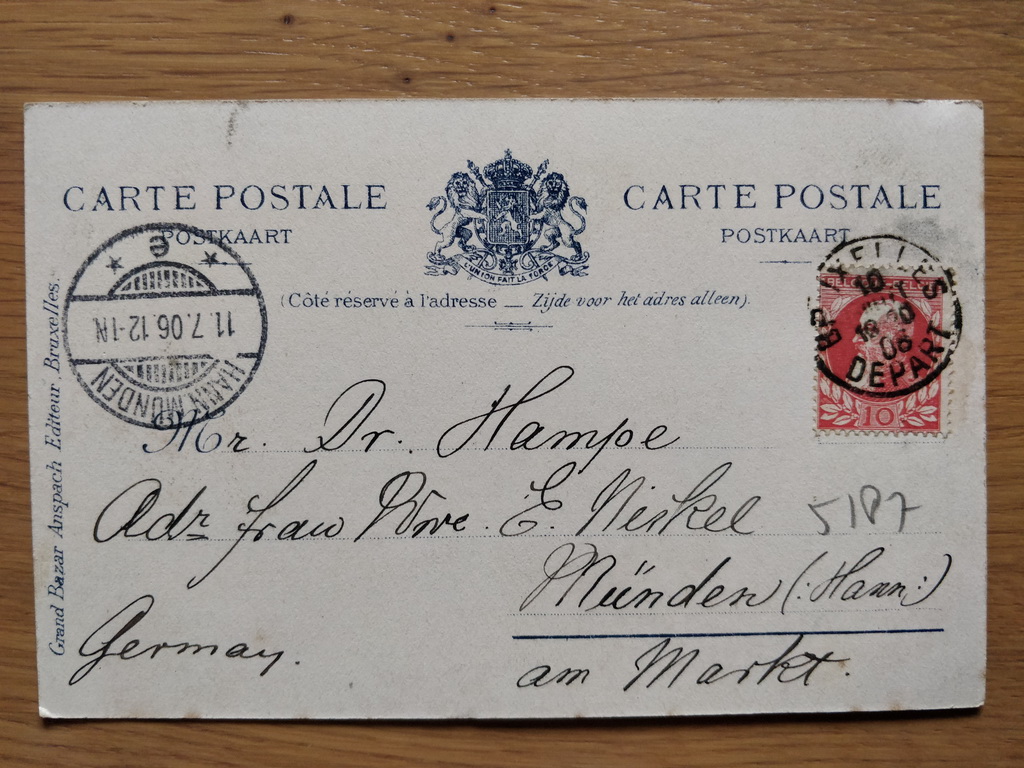 CARTE POSTALE
POSTKAART
L'UNION FAIT LA FORCE
CARTE POSTALE
POSTKAART
(Côté réservé à l'adresse — Zijde voor het adres alleen).
Grand Bazar Anspach Editeur, Bruxelles.
HANN. MÜNDEN
11.7.06.12-1N.
* e *
BRUXELLES
10
06
DEPART
10
Mr. Dr. Hampe
Adr frau Wwe. E. Niskel
5187
Münden (:Hann:)
Germany.
am Markt.